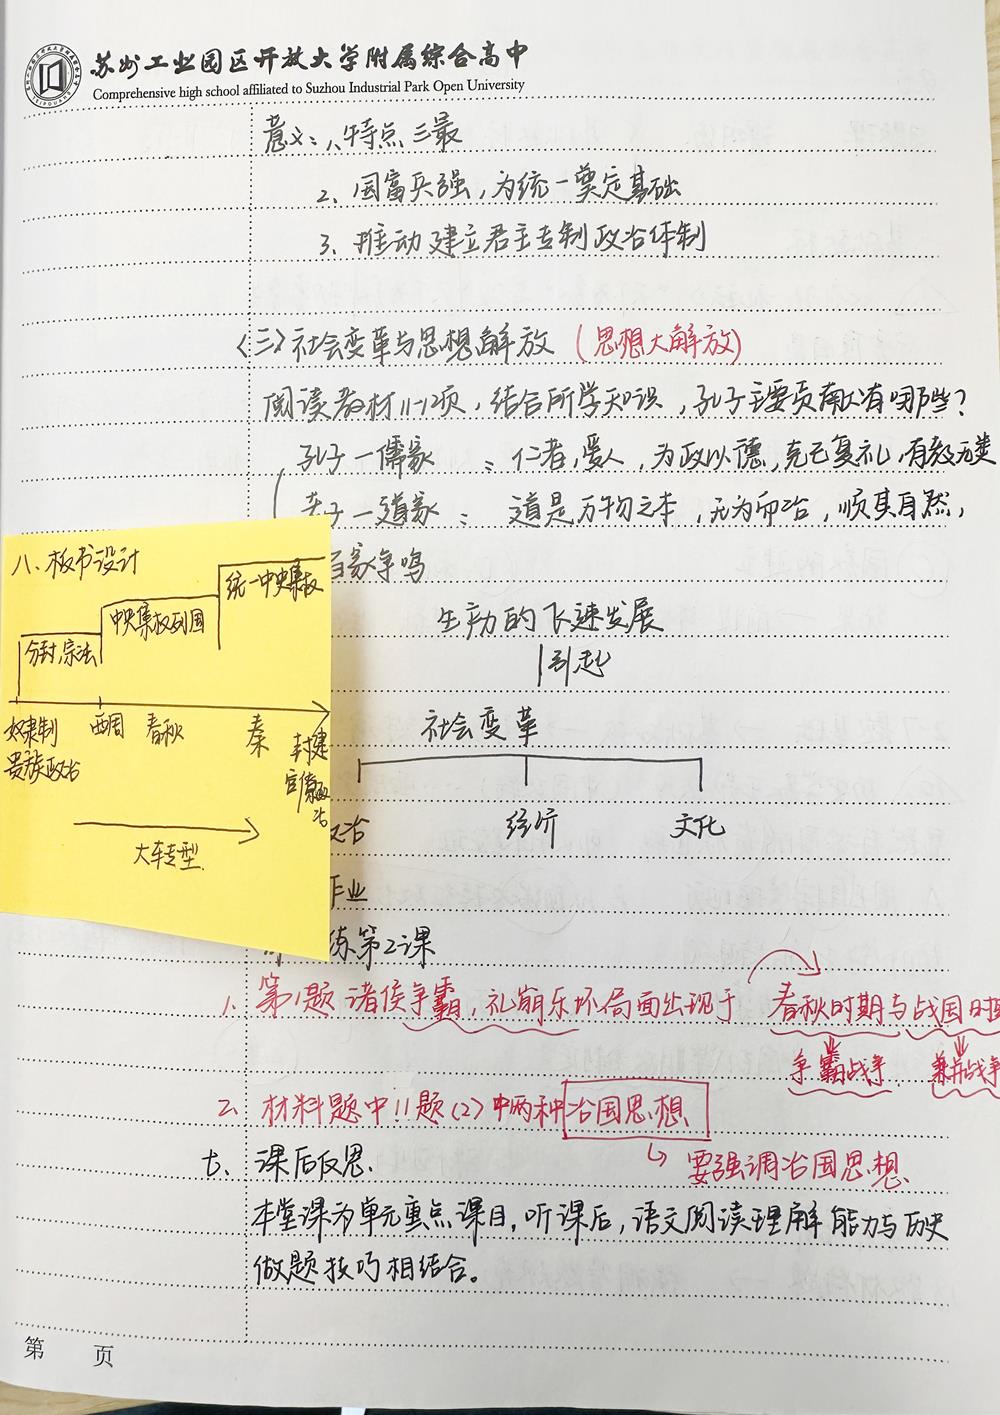 苏州工业园区开放大学附属综合高中
Comprehensive high school affiliated to Suzhou Industrial Park Open University
意义:1、特点 三最
2、国富兵强,为统一奠定基础
3、推动建立君主专制政治体制
(三)社会变革与思想解放(思想大解放)
阅读教材11-12项,结合所学知识,孔子主要贡献有哪些?
孔子—儒家:仁者,爱人,为政以德,克己复礼,有教无类
老子—道家:道是万物之本,无为而治,顺其自然,
百家争鸣
生产力的飞速发展
引起
社会变革
政治 经济 文化
作业
练第2课
1、第1题 诸侯争霸,礼崩乐坏局面出现于 春秋时期与战国时期
争霸战争 兼并战争
2、材料题中11题(2)中两种治国思想
要强调治国思想
七、课后反思.
本堂课为单元重点课目,听课后,语文阅读理解能力与历史
做题技巧相结合。
第 页
八、板书设计
分封,宗法 中央集权列国 统一中央集权
奴隶制 西周 春秋 秦 封建
贵族政治 官僚政治
大转型